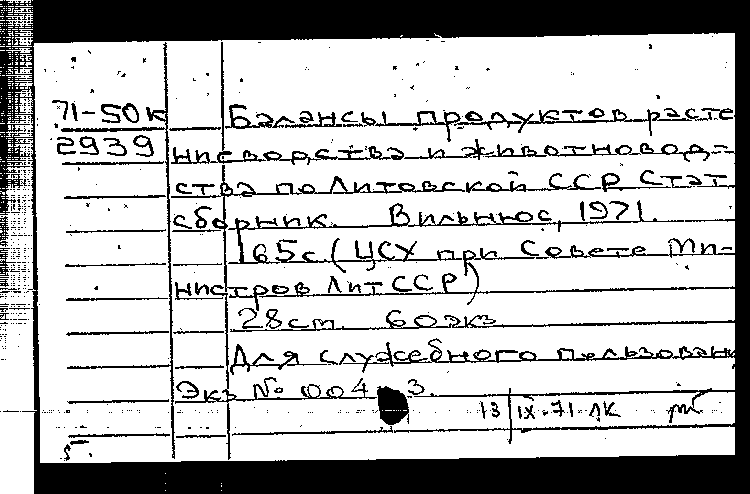 71-50к Балансы продуктов расте
2939 ниеводства и животновод-
ства по Литовской ССР. Стат.
сборник. Вильнюс, 1971.
165с (ЦСУ при Совете Ми-
нистров ЛитССР)
28см. 60экз
Для служебного пользован
Экз № 004 3.
13 IX-71-ЛК
5.